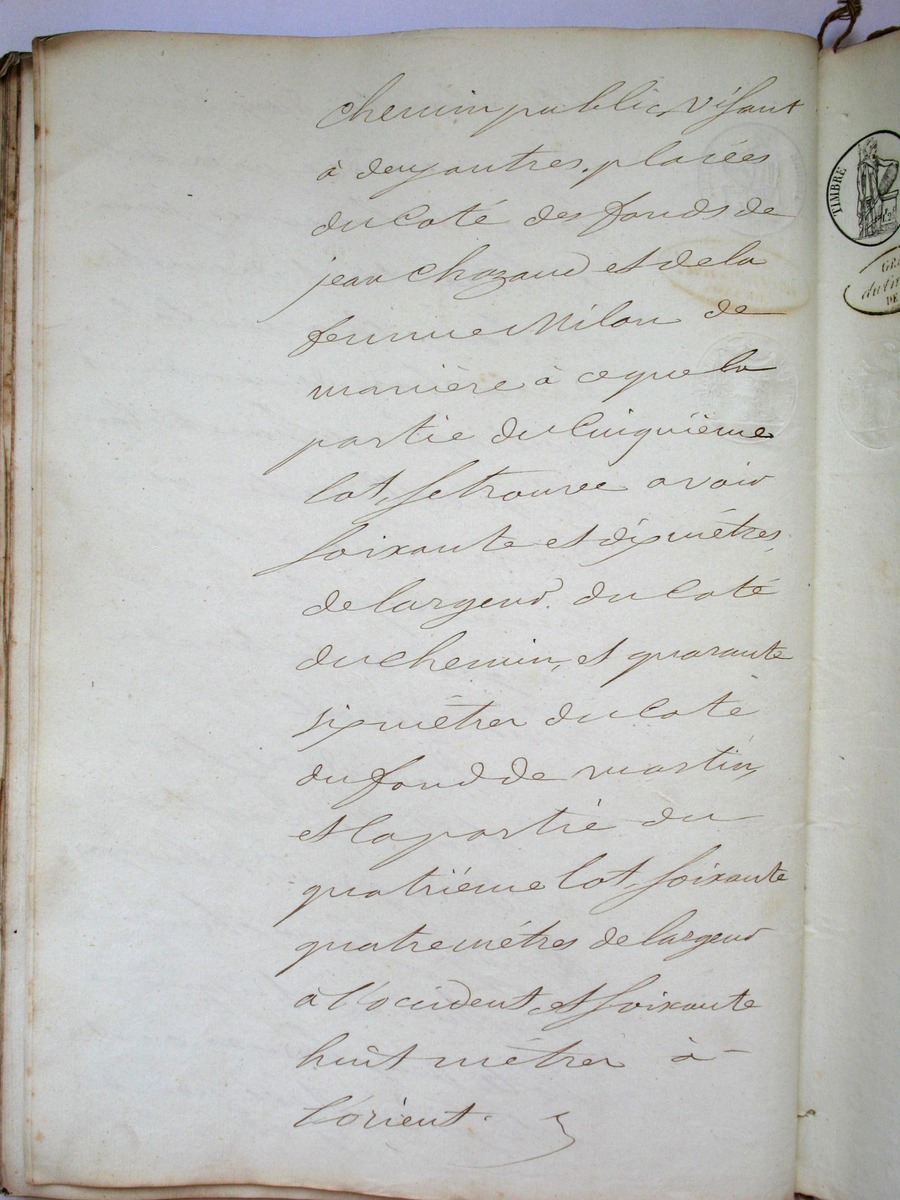 chemin public, visant
à deux autres, placées
du Coté des fonds de
jean Chazaud et de la
femme Milan de
manière à ce que la
partie du Cinquième
lot, se trouve avoir
soixante et dix mètres,
de largeur. du Coté
du chemin, et quarante
six mètres du Coté
du fond de martin,
et la partie du
quatrième lot, soixante
quatre mètres de largeur
à l'occident, et soixante
huit mètres à
l'orient.
TIMBRE